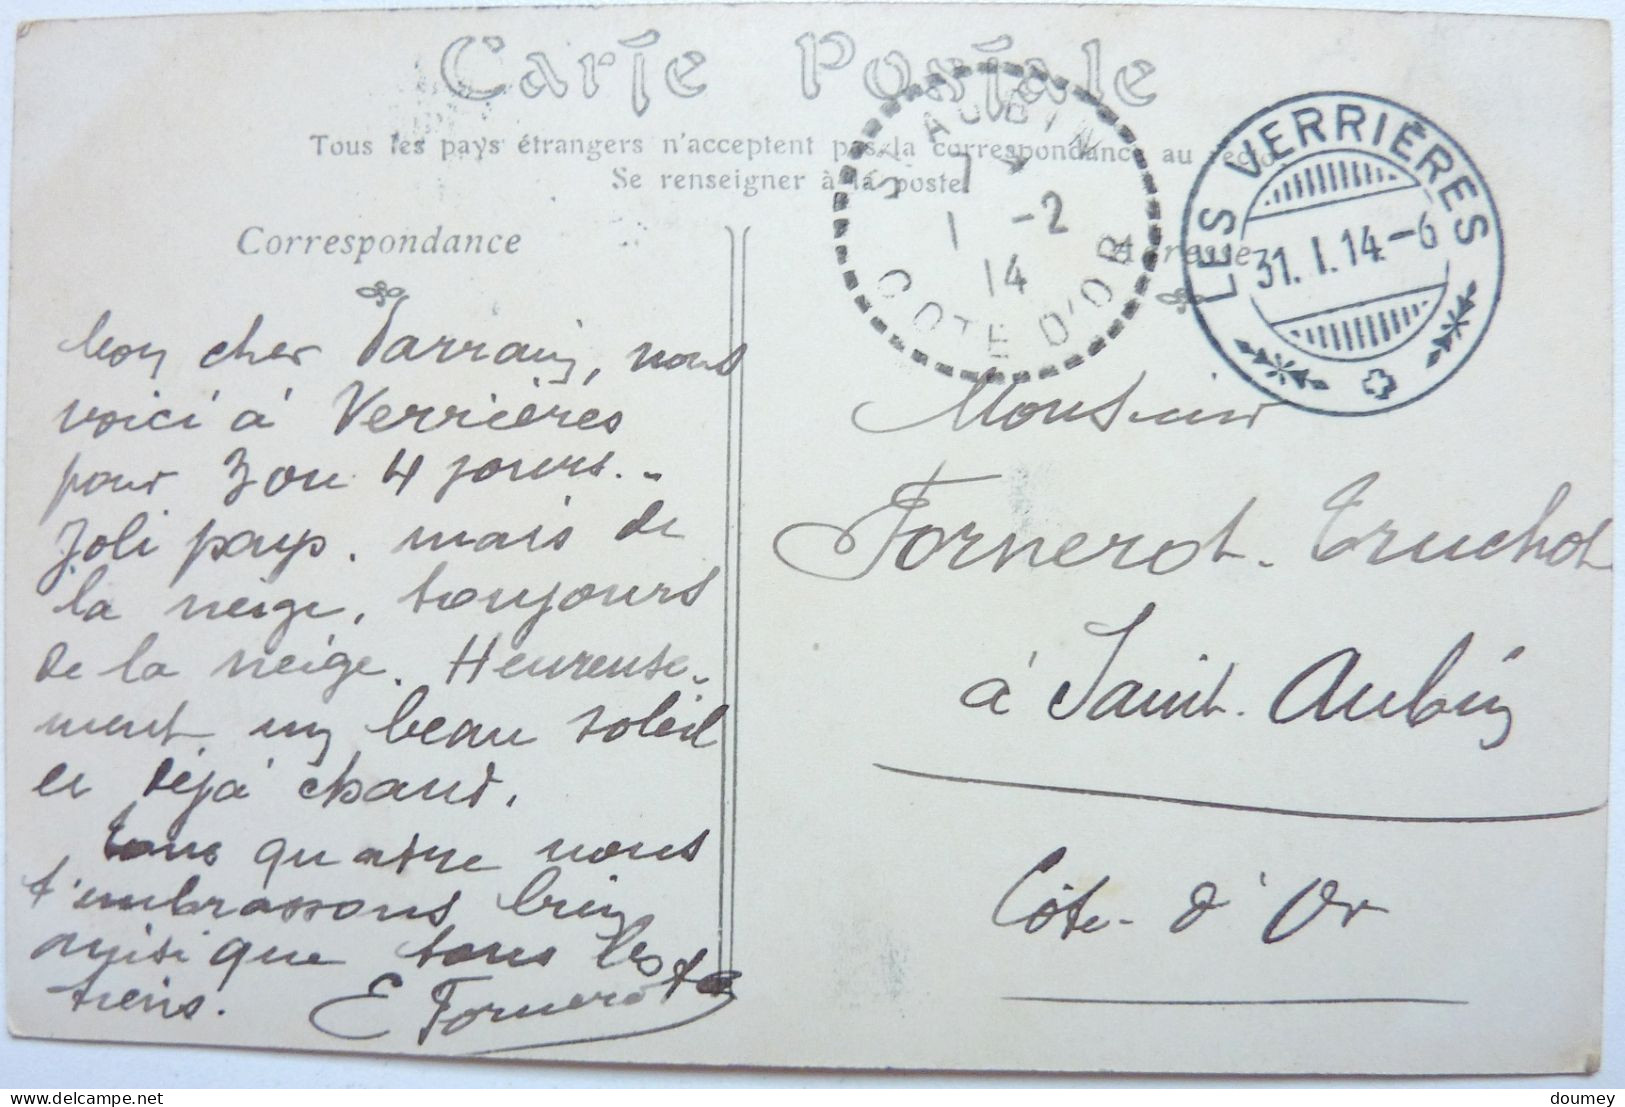 Carte Postale
Tous les pays étrangers n'acceptent pas la correspondance au recto
Se renseigner à la poste
Correspondance
Adresse
St AUBIN
1 -2
14
COTE D'OR
LES VERRIÈRES
31.I.14-6
Mon cher Parrain, nous
voici à Verrières
pour 3 ou 4 jours..
Joli pays. mais de
la neige, toujours
de la neige. Heureuse-
ment un beau soleil
et déjà chaud.
Tous quatre nous
t'embrassons bien
ainsi que tous les
tiens. E Fornerot
Monsieur
Fornerot-Truchot
à Saint-Aubin
Côte-d'Or
doumey